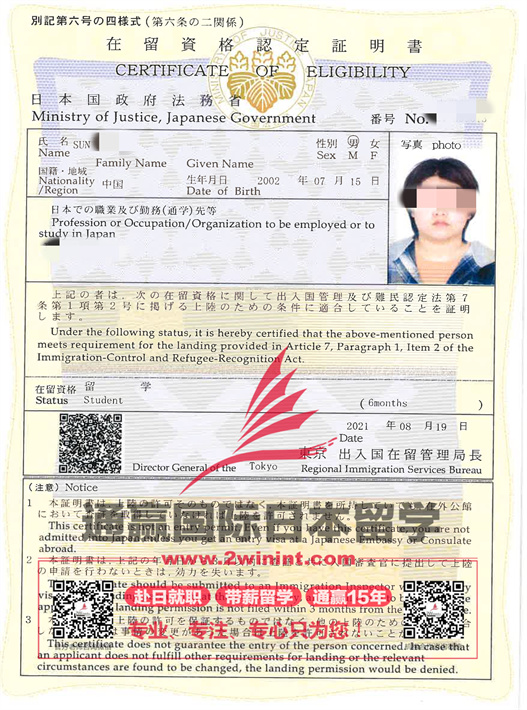 別記第六号の四様式(第六条の二関係)
在留資格認定証明書
CERTIFICATE OF ELIGIBILITY
日本国政府法務省
Ministry of Justice, Japanese Government
番号 No.
氏名 SUN
Name
Family Name Given Name
性別 男 女
Sex M F
写真 photo
国籍・地域
Nationality 中国
/Region
生年月日 2002 年 07 月 15 日
Date of Birth
日本での職業及び勤務(通学)先等
Profession or Occupation/Organization to be employed or to
study in Japan
上記の者は、次の在留資格に関して出入国管理及び難民認定法第7
条第1項第2号に掲げる上陸のための条件に適合していることを証明
します。
Under the following status, it is hereby certified that the above-mentioned person
meets requirement for the landing provided in Article 7, Paragraph 1, Item 2 of the
Immigration-Control and Refugee-Recognition Act.
在留資格 留学
Status Student
(6months )
2021 年 08 月 19 日
Date
東京 出入国在留管理局長
Director General of the Tokyo Regional Immigration Services Bureau
(注意) Notice
1 本証明書は、上陸の許可そのものではなく、本証明書を所持
通赢国际日本留学
This certificate is not an entry permit. Even if you have this certificate, you are not
admitted
abroad.
www.2winint.com
2 本証明書は、上記の年
の申請を行わないときは、効力を失います。
should be submitted to an Immigration Inspector
landing permission is not filed within 3 months from the
赴日就职 带薪留学 通赢15年
3
専业、专注、专心只为您!
This certificate does not guarantee the entry of the person concerned. In case that
an applicant does not fulfill other requirements for landing or the relevant
circumstances are found to be changed, the landing permission would be denied.